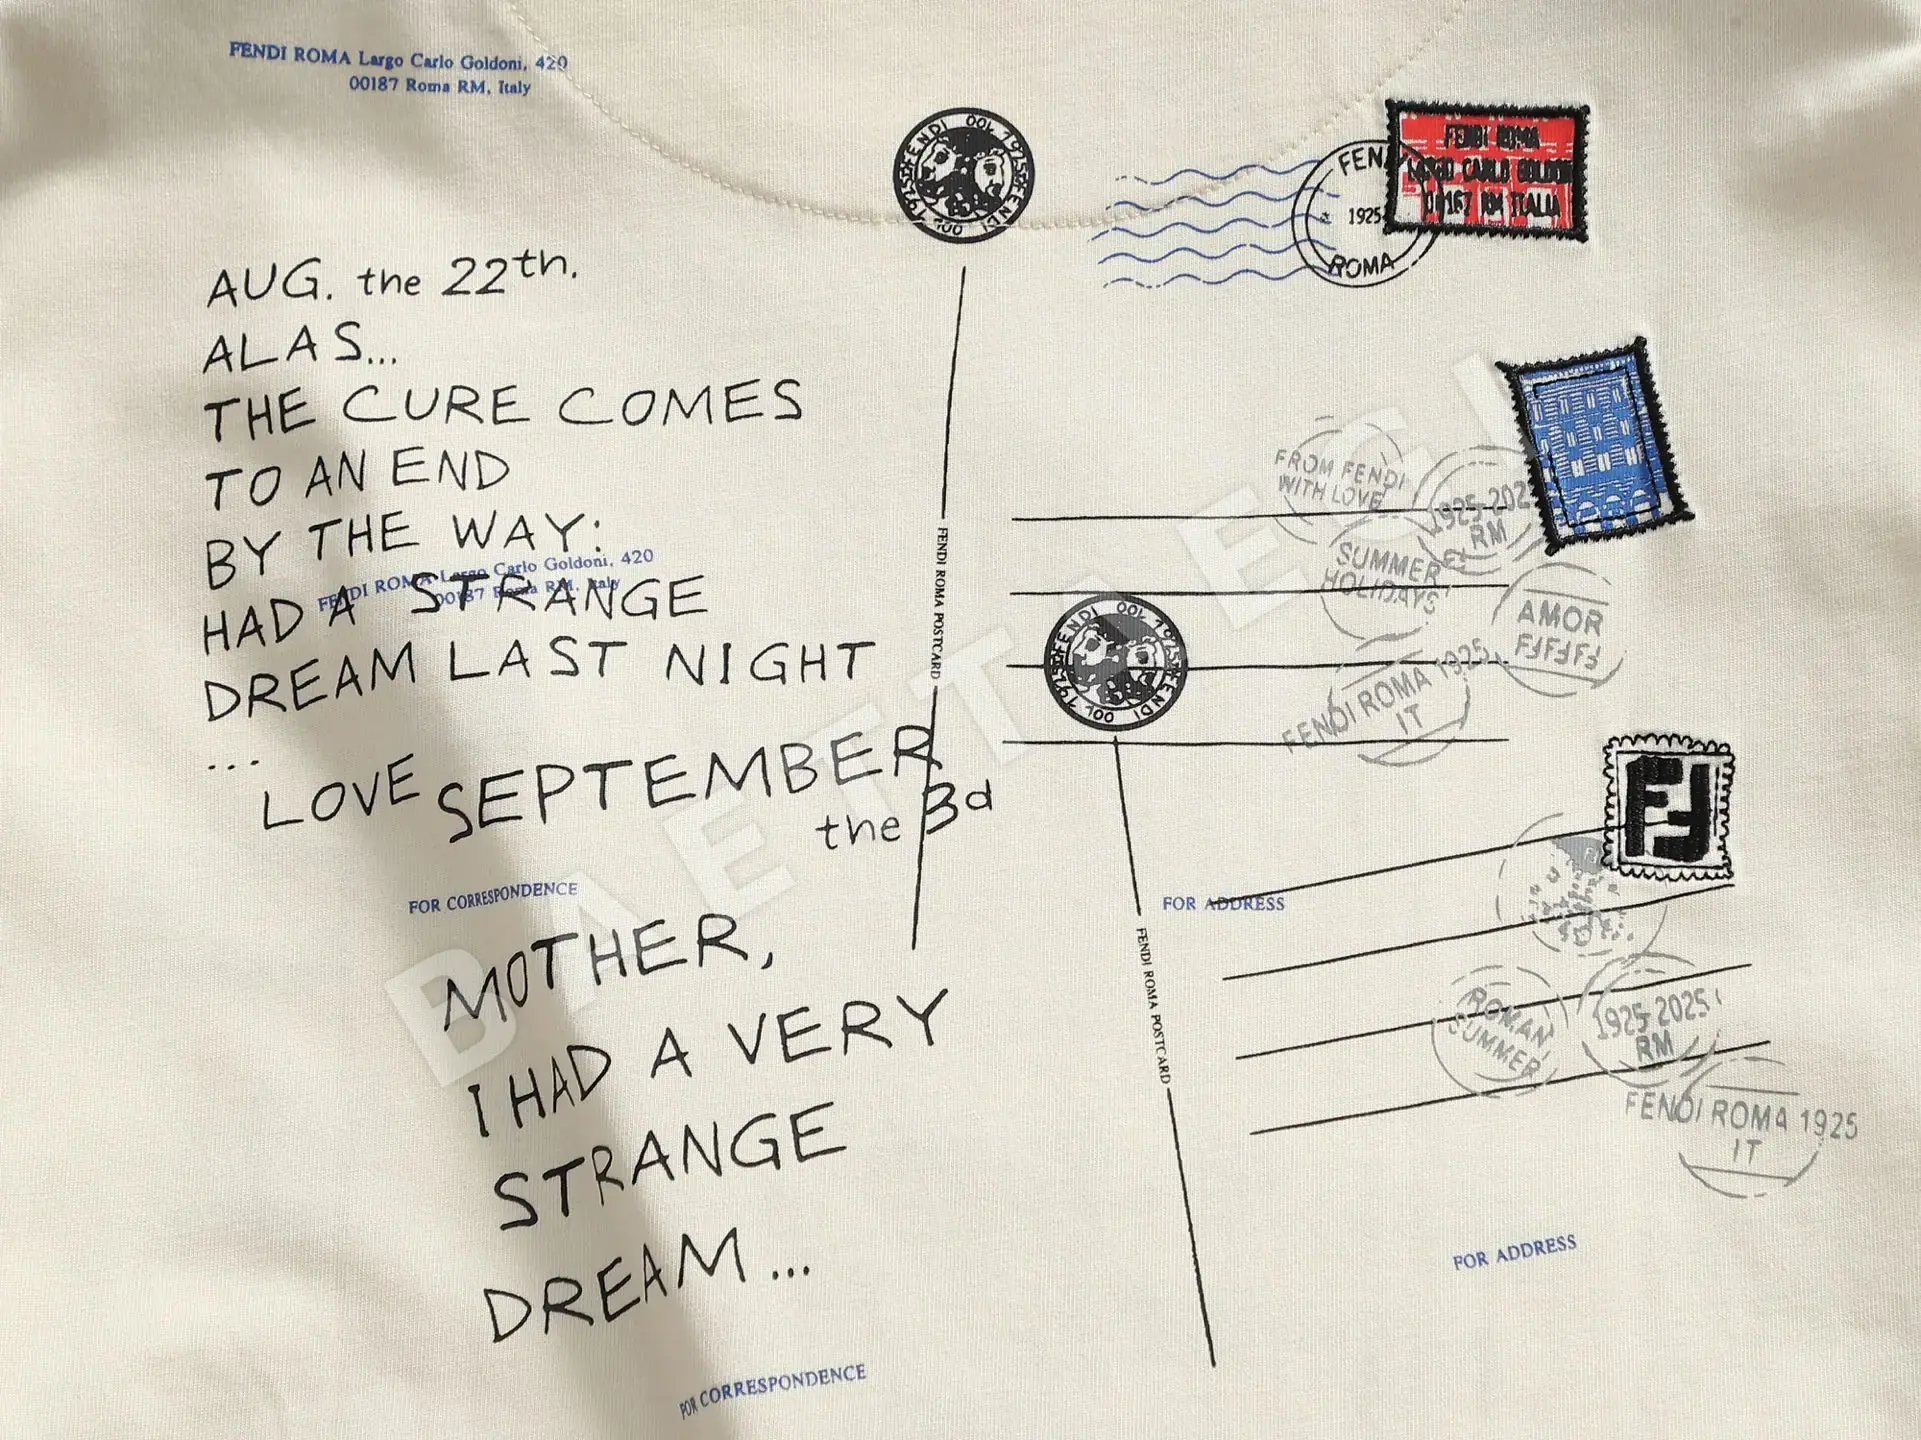 FENDI ROMA Largo Carlo Goldoni, 420
00187 Roma RM, Italy
AUG. the 22th.
ALAS...
THE CURE COMES
TO AN END
BY THE WAY:
HAD A STRANGE
DREAM LAST NIGHT
...
LOVE SEPTEMBER
the 3d
FENDI ROMA Largo Carlo Goldoni, 420
00187 Roma RM, Italy
FOR CORRESPONDENCE
MOTHER,
I HAD A VERY
STRANGE
DREAM...
FOR CORRESPONDENCE
FENDI OOL 1925 FENDI OOL 1925
FENDI ROMA POSTCARD
FEN
1925
ROMA
FENDI ROMA
LARGO CARLO GOLDONI
00187 RM ITALIA
FROM FENDI
WITH LOVE
1925-202
RM
SUMMER
HOLIDAYS
AMOR
FENDI ROMA 1925
IT
FENDI OOL 1925 FENDI OOL 1925
FENDI ROMA POSTCARD
FOR ADDRESS
ROMAN
SUMMER
1925-2025
RM
FENDI ROMA 1925
IT
FOR ADDRESS